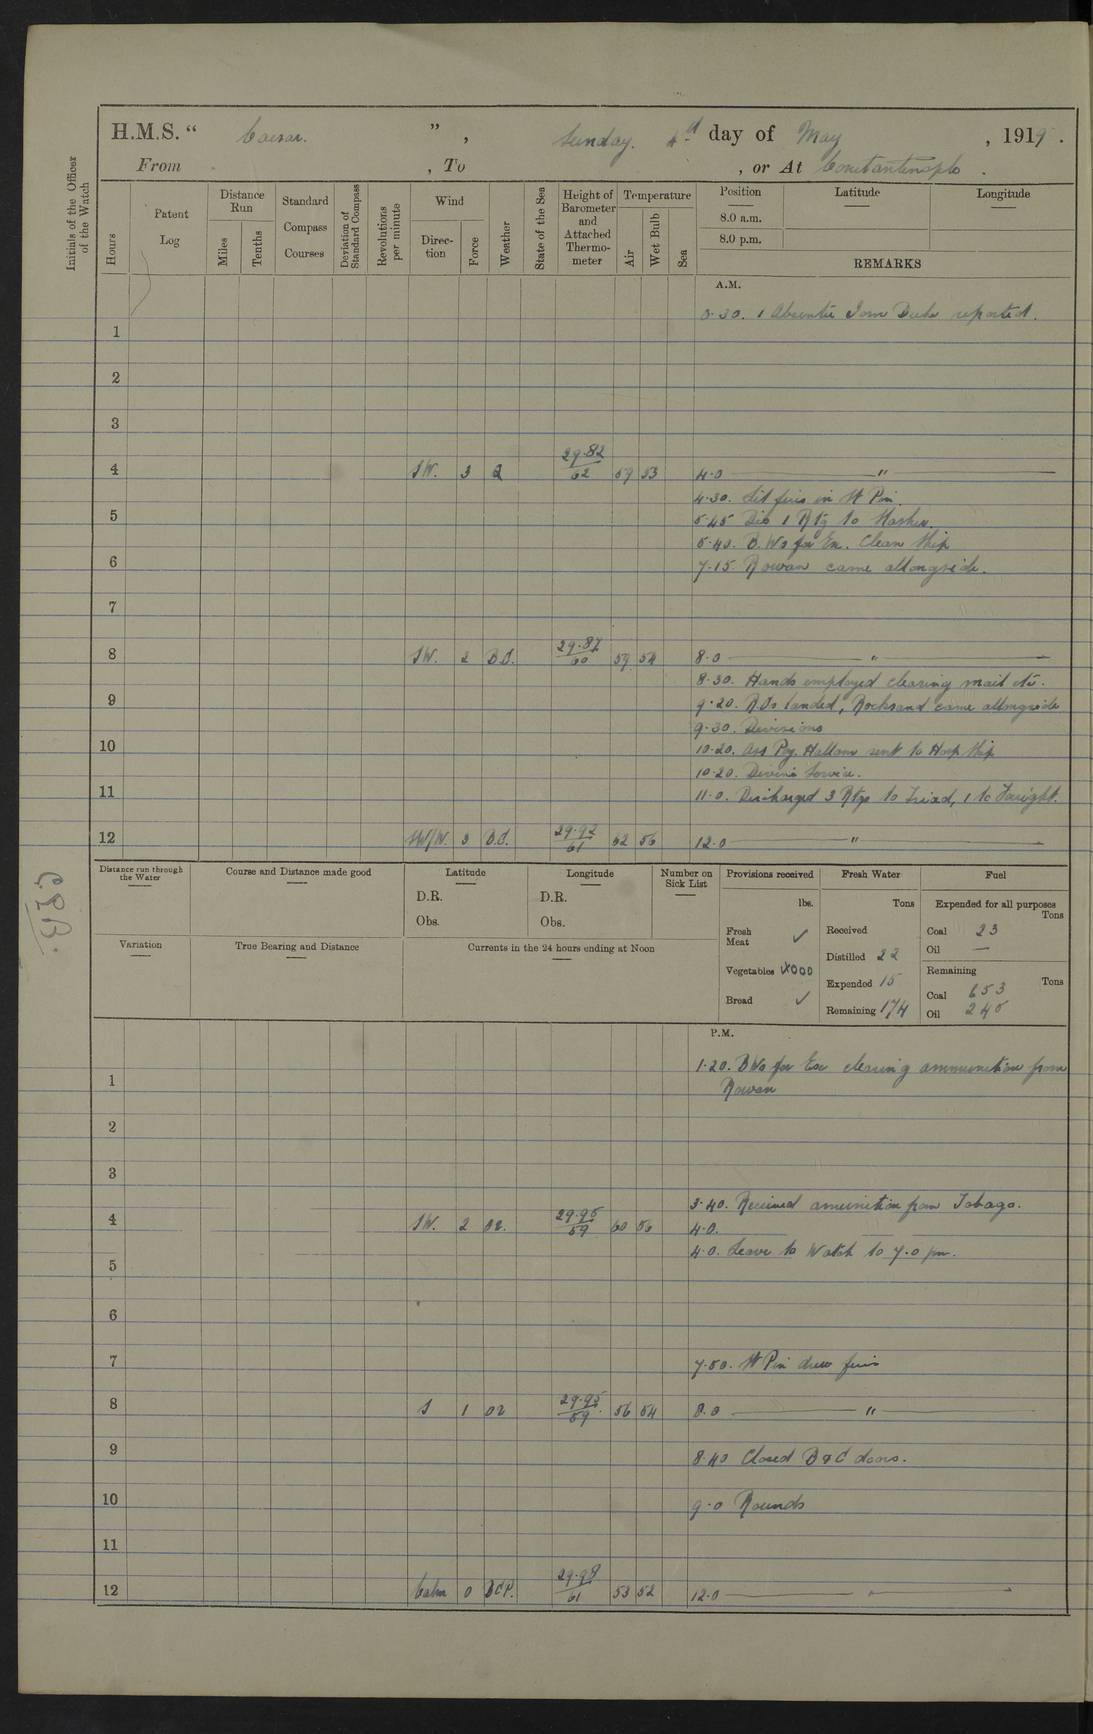 H.M.S. “ Caesar. ” , Sunday. 4th day of May , 1919 .
From , To , or At Constantinople .
Initials of the Officer of the Watch
Hours
Patent Log
Distance Run
Miles
Tenths
Standard Compass Courses
Deviation of Standard Compass
Revolutions per minute
Wind
Direc-tion
Force
Weather
State of the Sea
Height of Barometer and Attached Thermo-meter
Temperature
Air
Wet Bulb
Sea
Position Latitude Longitude
8.0 a.m.
8.0 p.m.
REMARKS
A.M.
0.30. 1 Absentee Iron Duke reported.
1
2
3
4 SW. 3 29.82/62 59 53 4.0 "
4.30. Lit fires in
5 5.45 Dis 1 Rtg to
5.40. B.Ws for Ex. Clean Ship
6 7.15. Rowan came allongside.
7
8 SW. 2 B.C. 29.87/60 59 54 8.0 "
8.30. Hands employed clearing mail etc.
9 9.20. R.Cs landed, Rocksand came allongside
9.30. Divisions
10 10.20. Ass Pay. Hallam sent to Hosp Ship
10.20. Divine Service.
11 11.0. Discharged 3 Rtgs to Triad, 1 to
12 SW/W. 3 B.C. 29.92/61 62 56 12.0 "
Distance run through the Water
Course and Distance made good
Latitude
D.R.
Obs.
Longitude
D.R.
Obs.
Number on Sick List
Provisions received
lbs.
Fresh Meat ✓
Vegetables
Bread ✓
Fresh Water
Tons
Received
Distilled 22
Expended 15
Remaining 174
Fuel
Expended for all purposes
Tons
Coal 23
Oil —
Remaining
Tons
Coal 653
Oil 245
Variation
True Bearing and Distance
Currents in the 24 hours ending at Noon
P.M.
1.20. BWs for Ex clearing ammunition from
1 Rowan
2
3
3.40. Received amunition from Tobago.
4 SW. 2 29.95/59 60 56 4.0.
4.0. Leave to Watch to 7.0 pm.
5
6
7 7.50. drew fires
8 S 1 29.95/59 56 54 8.0 "
9 8.40 Closed B & C doors.
10 9.0 Rounds
11
12 Calm 0 BCP. 29.98/61 53 52 12.0 "